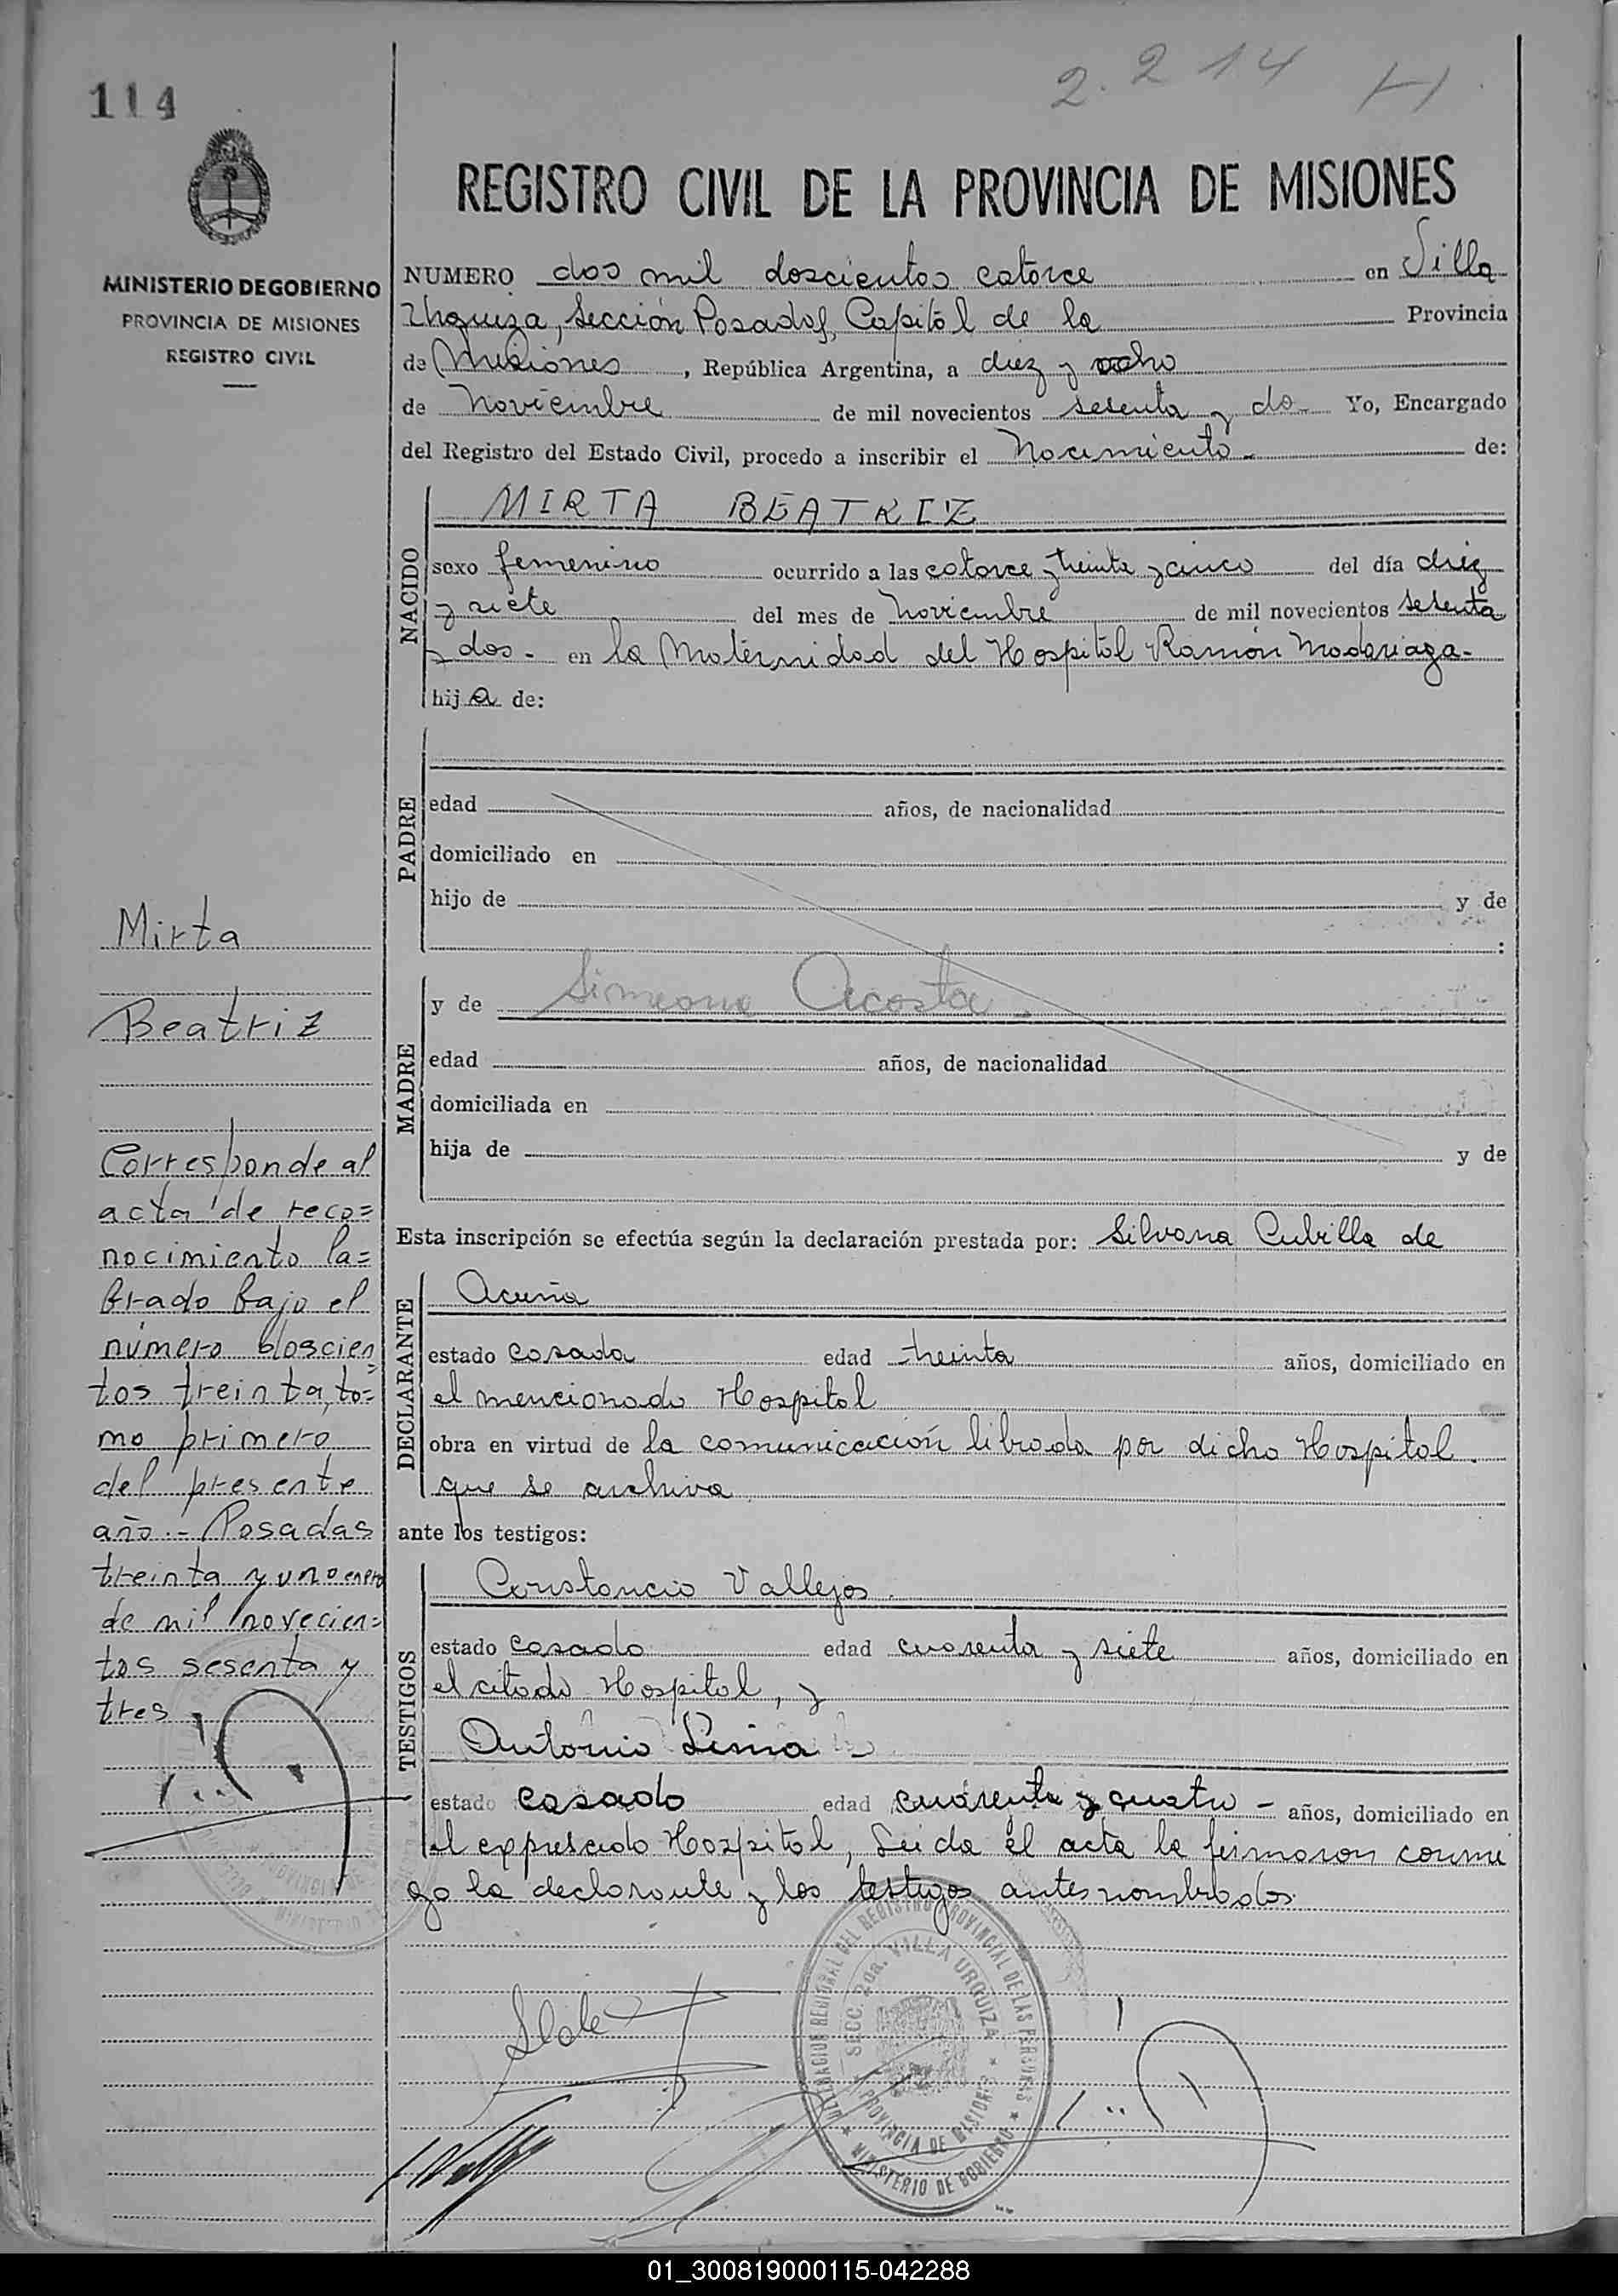 114
2.214 H
MINISTERIO DE GOBIERNO
PROVINCIA DE MISIONES
REGISTRO CIVIL
REGISTRO CIVIL DE LA PROVINCIA DE MISIONES
NUMERO dos mil doscientos catorce en Villa
Urquiza, Sección Posadas, Capital de la Provincia
de Misiones, República Argentina, a diez y ocho
de Noviembre de mil novecientos sesenta y dos Yo, Encargado
del Registro del Estado Civil, procedo a inscribir el Nacimiento de:
NACIDO
MIRTA BEATRIZ
sexo femenino ocurrido a las catorce y treinta y cinco del día diez
y siete del mes de Noviembre de mil novecientos sesenta
y dos - en la Maternidad del Hospital Ramón Madariaga-
hija de:
PADRE
edad años, de nacionalidad
domiciliado en
hijo de y de
:
MADRE
y de Simeona Acosta -
edad años, de nacionalidad
domiciliada en
hija de y de
Esta inscripción se efectúa según la declaración prestada por: Silvana Cubilla de
DECLARANTE
Acuña
estado casada edad treinta años, domiciliado en
el mencionado Hospital
obra en virtud de la comunicación librada por dicho Hospital.
que se archiva
ante los testigos:
TESTIGOS
Constancio Vallejos.
estado casado edad cuarenta y siete años, domiciliado en
el citado Hospital, y
Antonio Lima
estado casado edad cuarenta y cuatro - años, domiciliado en
el expresado Hospital, Leida el acta la firmaron conmi
go la declarante y los testigos antes nombrados.
Mirta
Beatriz
Corresponde al
acta de reco=
nocimiento la=
brado bajo el
número doscien
tos treinta, to=
mo primero
del presente
año.- Posadas
treinta y uno enero
de mil novecien=
tos sesenta y
tres
REGIONAL DEL REGISTRO PROVINCIAL DE LAS PERSONAS
SECC. 2da. VILLA URQUIZA
PROVINCIA DE MISIONES
MINISTERIO DE GOBIERNO
01_300819000115-042288